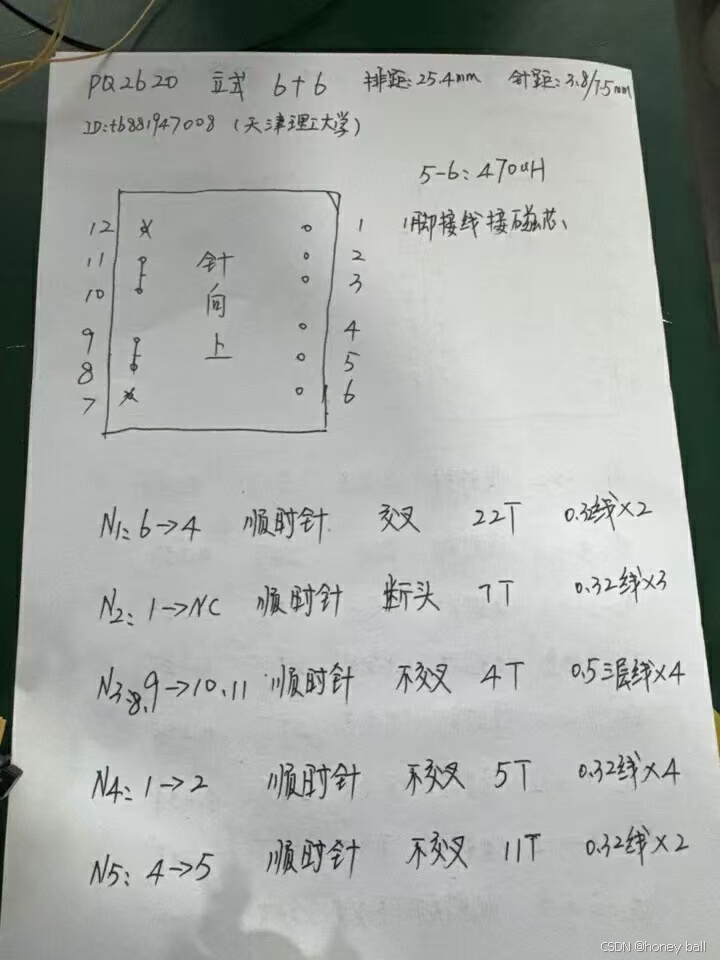 PQ2620 立式 6+6 排距:25.4mm 针距:3.8/7.5mm
ID:tb881947008 (天津理工大学)
5-6:470uH
1脚接线接磁芯、
12 1
11 针 2
10 向 3
9 上 4
8 5
7 6
N1:6→4 顺时针 交叉 22T 0.32线×2
N2:1→NC 顺时针 断头 7T 0.32线×3
N3:8,9→10.11 顺时针 不交叉 4T 0.5三层线×4
N4:1→2 顺时针 不交叉 5T 0.32线×4
N5:4→5 顺时针 不交叉 11T 0.32线×2
CSDN @honey ball